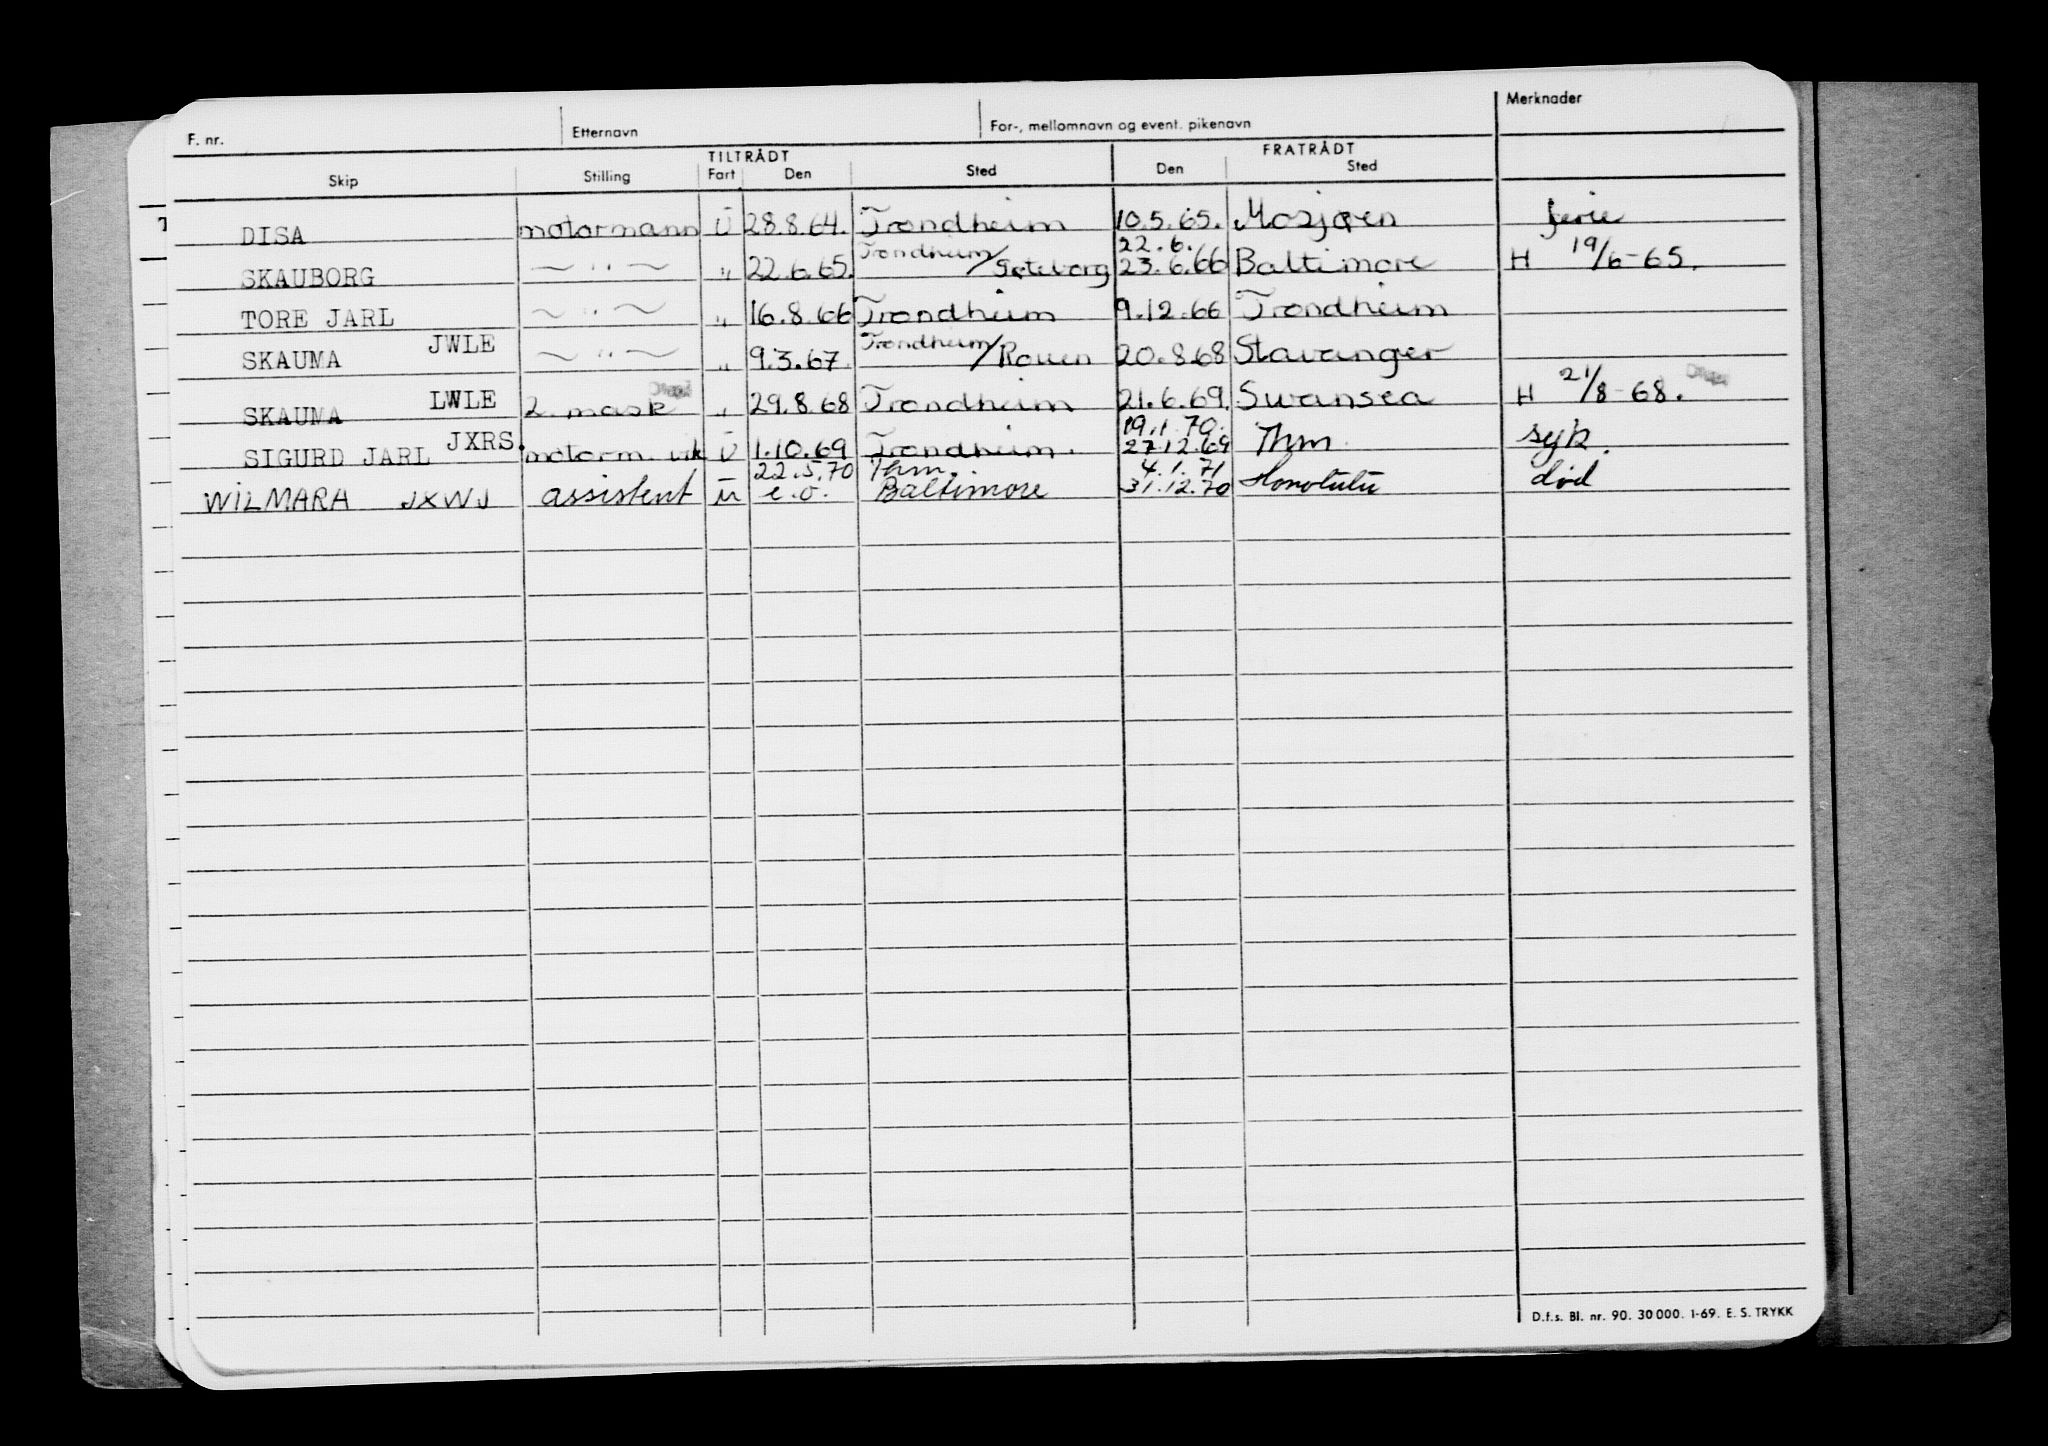 F. nr. Etternavn For-, mellomnavn og event. pikenavn Merknader
TILTRÅDT FRATRÅDT
Skip Stilling Fart Den Sted Den Sted
DISA motormann U 28.8.64. Trondheim 10.5.65. Mosjøen ferie
SKAUBORG — " — " 22.6.65. Trondheim/Gøteborg 22.6. 23.6.66 Baltimore H 19/6-65.
TORE JARL — " — " 16.8.66 Trondheim 9.12.66 Trondheim
SKAUMA JWLE — " — " 9.3.67. Trondheim/Rouen 20.8.68 Stavanger
SKAUMA LWLE 2. mask " 29.8.68 Trondheim 21.6.69. Swansea H 21/8-68.
SIGURD JARL JXRS. motorm. vik U 1.10.69 Trondheim. 19.1.70. 27.12.69 Thm. syk.
WILMARA JXWJ assistent u 22.5.70 e.o. Thm. Baltimore 4.1.71 31.12.70 Honolulu død
D.f.s. Bl. nr. 90. 30 000. 1-69. E. S. TRYKK